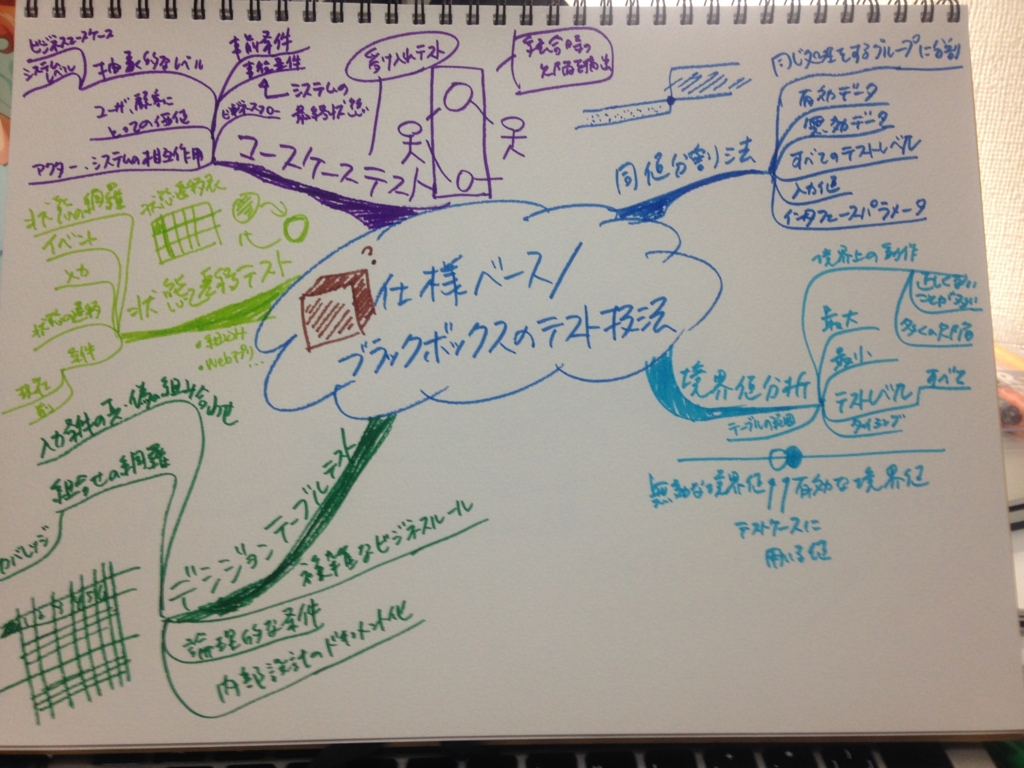 仕様ベース/
ブラックボックスのテスト技法
?
同値分割法
同じ処理をするグループに分割
有効データ
無効データ
すべてのテストレベル
入力値
インタフェースパラメータ
境界値分析
境界上の動作
正しくない
ことが多い
多くの欠陥
最大
最小
テストレベル
すべて
タイミング
テーブルの範囲
無効な境界値
有効な境界値
テストケースに
用いる値
デシジョンテーブルテスト
複雑なビジネスルール
論理的な条件
内部設計のドキュメント化
組合せの網羅
カバレッジ
入力条件の真・偽の組み合わせ
状態遷移テスト
状態遷移表
状態の網羅
イベント
入力
状態の遷移
条件
・組込み
・Webアプリ...
ユースケーステスト
受け入れテスト
統合時の
欠陥を検出
事前条件
事後条件
システムの
最終状態
抽象的なレベル
ビジネスユースケース
システムレベル
ユーザ、顧客に
とっての価値
アクター、システムの相互作用